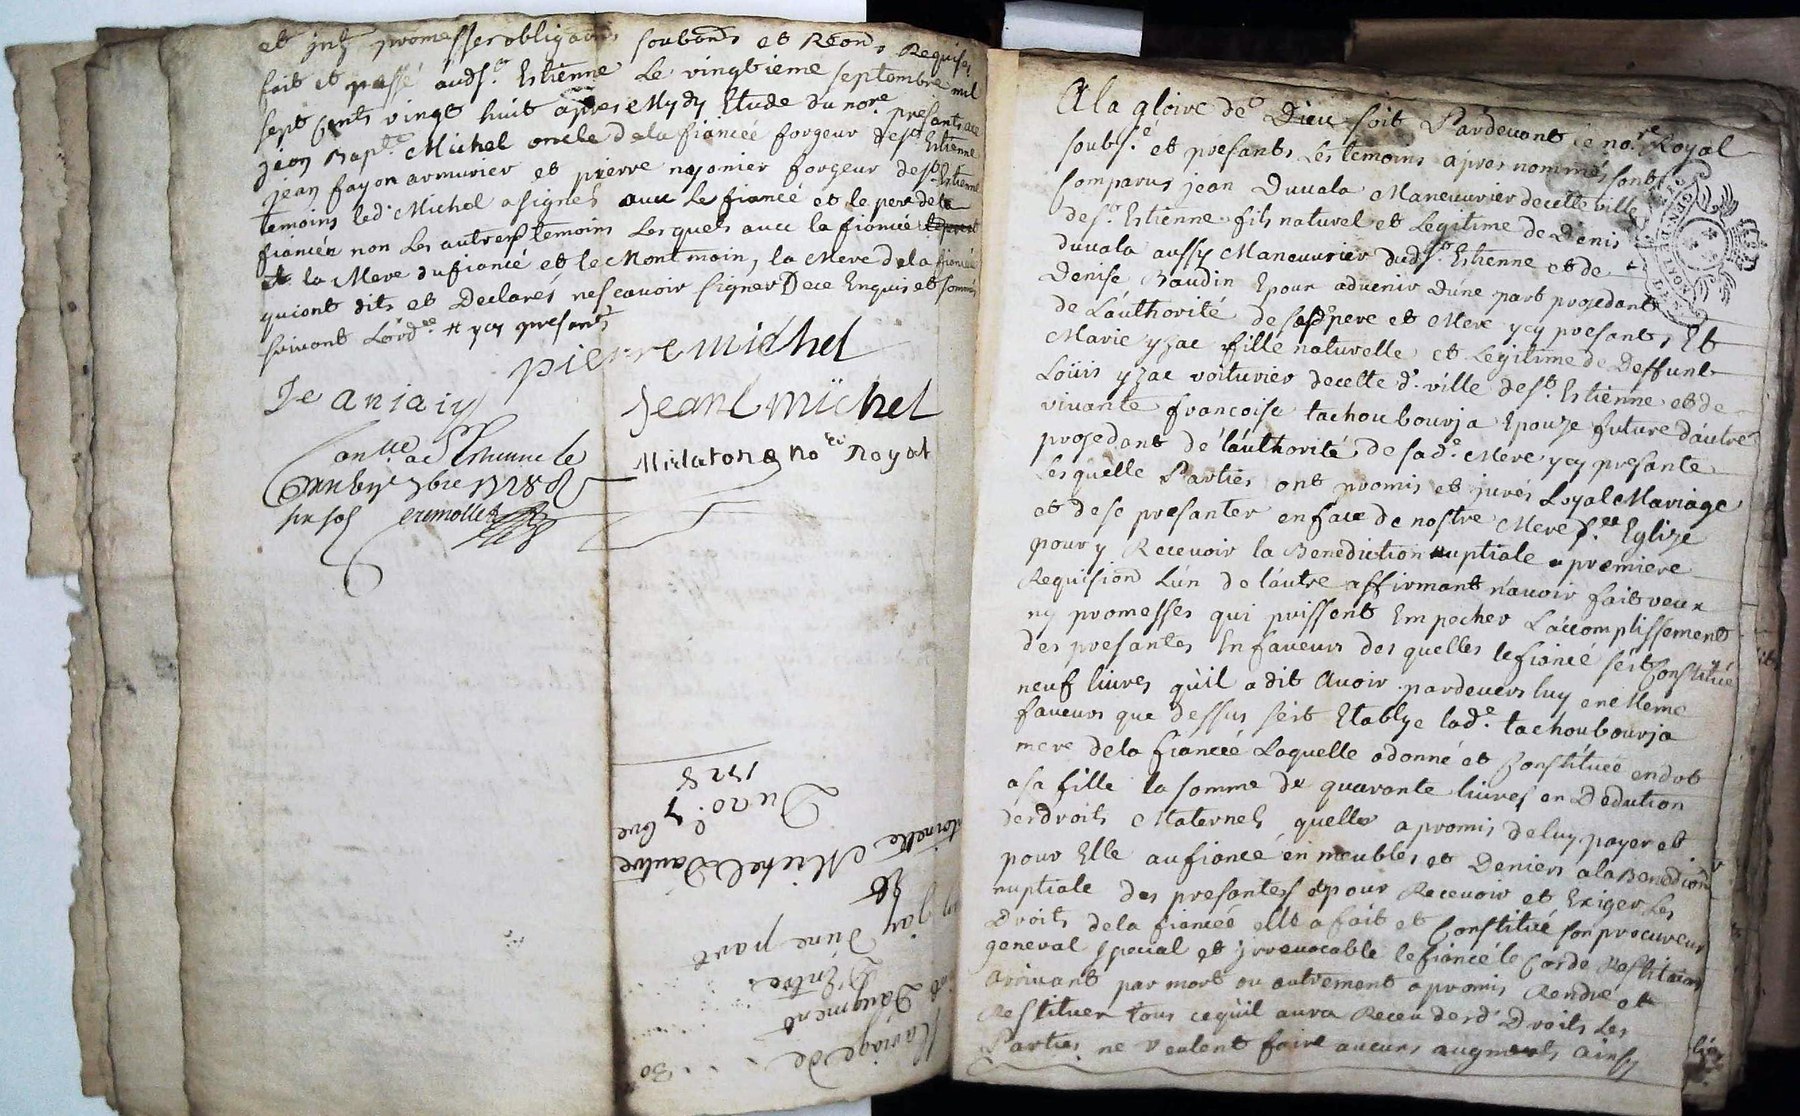 et jntz promesses obligaons soubons et Réons Requises
fait et passé audst. Estienne Le vingtieme septembre mil
sept Cents vingt huit apres Mydy Etude du nore. presants au
jean Baptte Michel oncle de la fiancée forgeur de st. Estienne
jean fayon armurier et pierre noyonier forgeur de st. Estienne
temoins led. Michel a signés avec Le fiancé et le pere de la
fiancée non Les autres temoins Lesquels avec la fiancée
et la Mere du fiancé et le Montmain, la Mere de la fiancée
qui ont dits et Declarés ne scavoir signer De ce Enquis et sommés
suivant L'ordce # ycy presants
pierre michel
Je an jaiy
jeanl michel
Conlle a St Etienne le
Mirlaton no re Royal
7bre 1728
six sols
1728
Du 20e. 7bre
Michel D'autre
et
jay D'une part
D'Entre
D'augment
Mariage de
30
A la gloire de Dieu soit Pardevant le nore. Royal
soubs.é et présants Les temoins apres nommés sont
Comparus jean Duvala Maneuvrier de cette ville
de st. Estienne fils naturel et Legitime de Denis
duvala aussy Maneuvrier dudst. Estienne et de
Denise Baudin Epoux advenir d'une part progedant
de L'authorité de sesd. pere et Mere ycy presants, Et
Marie yzac fille naturelle et Legitime de Deffunt
Loüis yzac voiturier de cette d. ville de st. Estienne et de
vivante francoise tachoubourja Epouze future d'autre
progedant de l'authorité de sade. Mere ycy presante
Lesquelle Parties ont promis et jurés Loyal Mariage
et de se presanter en face de nostre Mere ste. Eglize
pour y Recevoir la Benediction nuptiale a premiere
Requision L'un de l'autre affirmant n'avoir fait veux
ny promesses qui puissent Empecher L'accomplissement
des presantes En faveurs des quelles le fiancé s'est Constitué
neuf livres qu'il a dit Avoir pardevers luy en Meme
faveurs que dessus s'est Etablye lade. tachoubourja
mere de la fiancée Laquelle a donné et Constituée en dot
a sa fille la somme de quarante livres en Dedution
des droits Maternels quelle a promis de luy payer et
pour Elle au fiancé en meubles et Deniers a la Benedion
nuptiale des presantes & pour Recevoir et Exiger Les
Droits de la fiancée elle a fait et Constitué son procureur
general special et jrrevocable le fiancé le Cas de Restituion
arrivant par mort ou autrement a promis Rendre et
Restituer tous ce qu'il aura Receu desd. Droits Les
Parties ne veulent faire aucuns augments ainsy